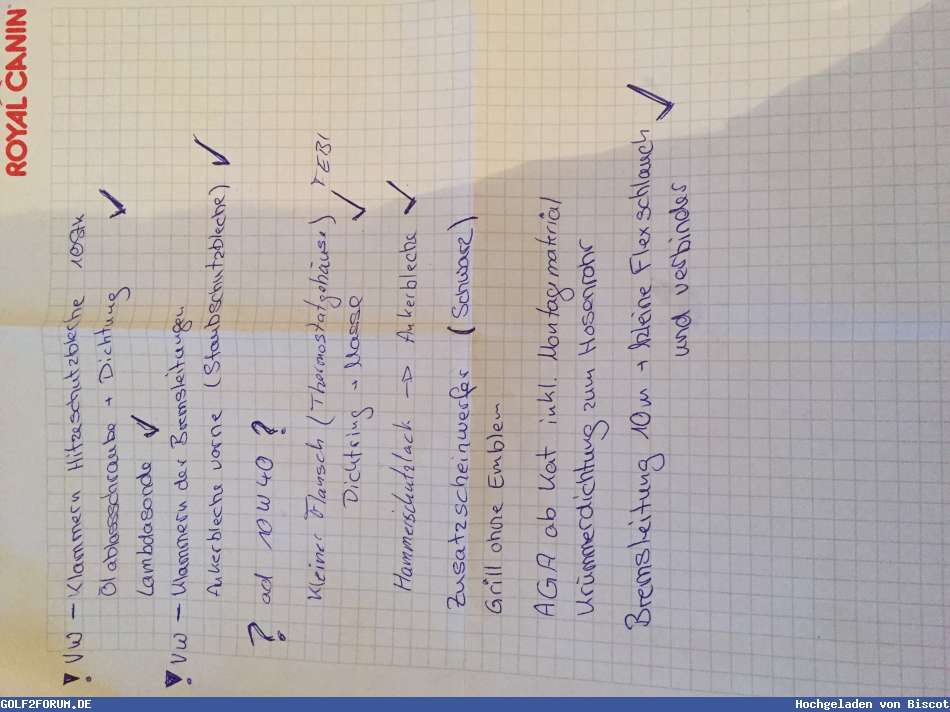 ROYAL CANIN
! VW – Klammern Hitzeschutzbleche 10Stk
Ölablassschraube + Dichtung ✓
Lambdasonde ✓
! VW – Klammern der Bremsleitungen
Ankerbleche vorne (Staubschutzbleche) ✓
? ad 10W40 ?
Kleiner Flansch (Thermostatgehäuse) FEBI
Dichtring + Masse ✓
Hammerschutzlack → Ankerbleche ✓
Zusatzscheinwerfer (Schwarz)
Grill ohne Emblem
AGA ab Kat inkl. Montagmaterial
Krümmerdichtung zum Hosenrohr
Bremsleitung 10m + kleine Flexschlauch ✓
und verbinder
GOLF2FORUM.DE
Hochgeladen von Biscot